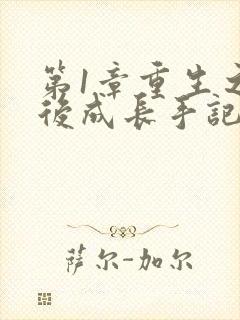 第1章重生之
後成長手記
萨尔-加尔